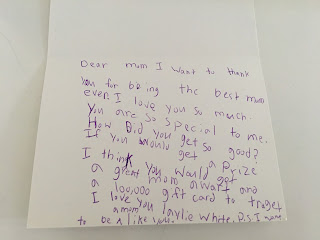 Dear mom I want to thank
you for bĕing the best mom
ever. I love you so much.
You are so special to me.
How Did you get so good?
If you would get a prize
I think you would get
a great mom awart and
a 100,000 gift card to traget
I love you
a mom Laylie White. P.S. I want
to be a like you.